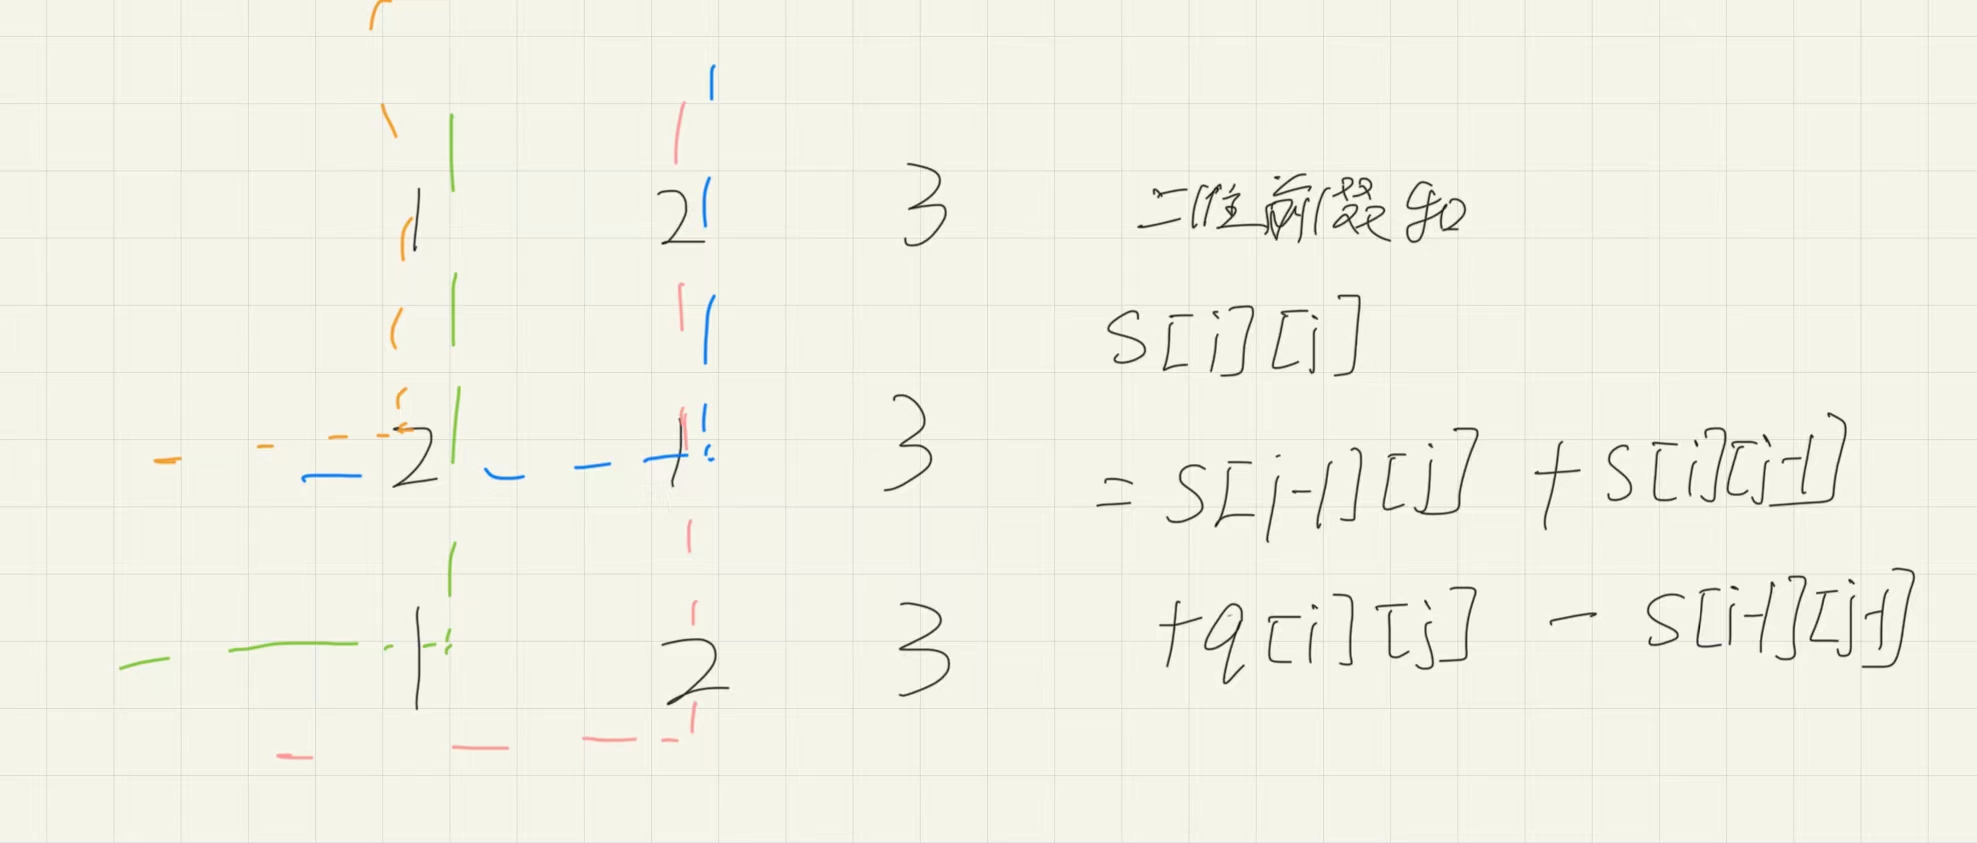 1 2 3
2 1 3
1 2 3
二维前缀和
S[i][j]
= S[i-1][j] + S[i][j-1]
+ a[i][j] - S[i-1][j-1]